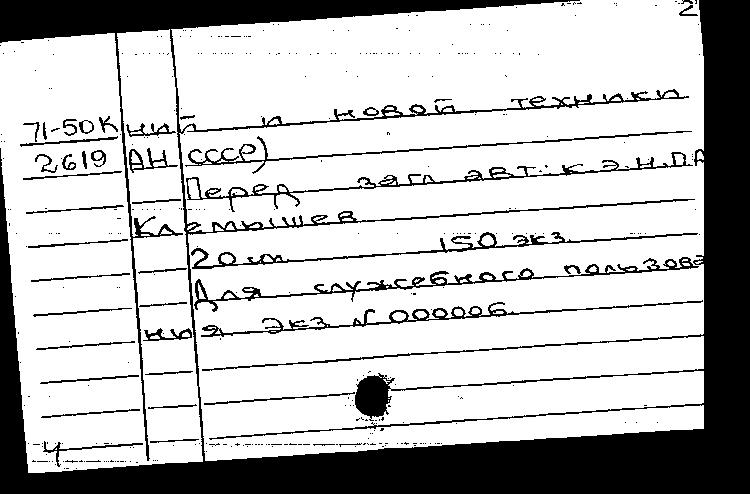 2
71-50К ний и новой техники
2619 АН СССР)
Перед загл авт: К.Э.Н. П.А
Клемышев
20 см 150 экз.
Для служебного пользова
ния Экз N 000006.
4